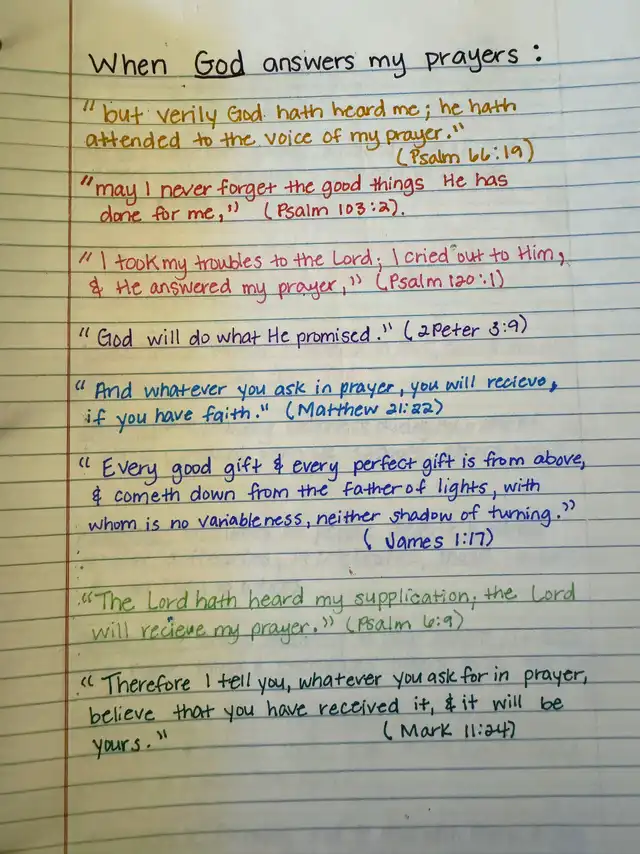 When God answers my prayers :
"but verily God hath heard me; he hath
attended to the voice of my prayer."
(Psalm 66:19)
"may I never forget the good things He has
done for me," (Psalm 103:2).
"I took my troubles to the Lord; I cried out to Him,
& He answered my prayer," (Psalm 120:1)
"God will do what He promised." (2Peter 3:9)
"And whatever you ask in prayer, you will recieve,
if you have faith." (Matthew 21:22)
"Every good gift & every perfect gift is from above,
& cometh down from the father of lights, with
whom is no variableness, neither shadow of turning."
(James 1:17)
"The Lord hath heard my supplication; the Lord
will recieve my prayer." (Psalm 6:9)
"Therefore I tell you, whatever you ask for in prayer,
believe that you have received it, & it will be
yours."
(Mark 11:24)